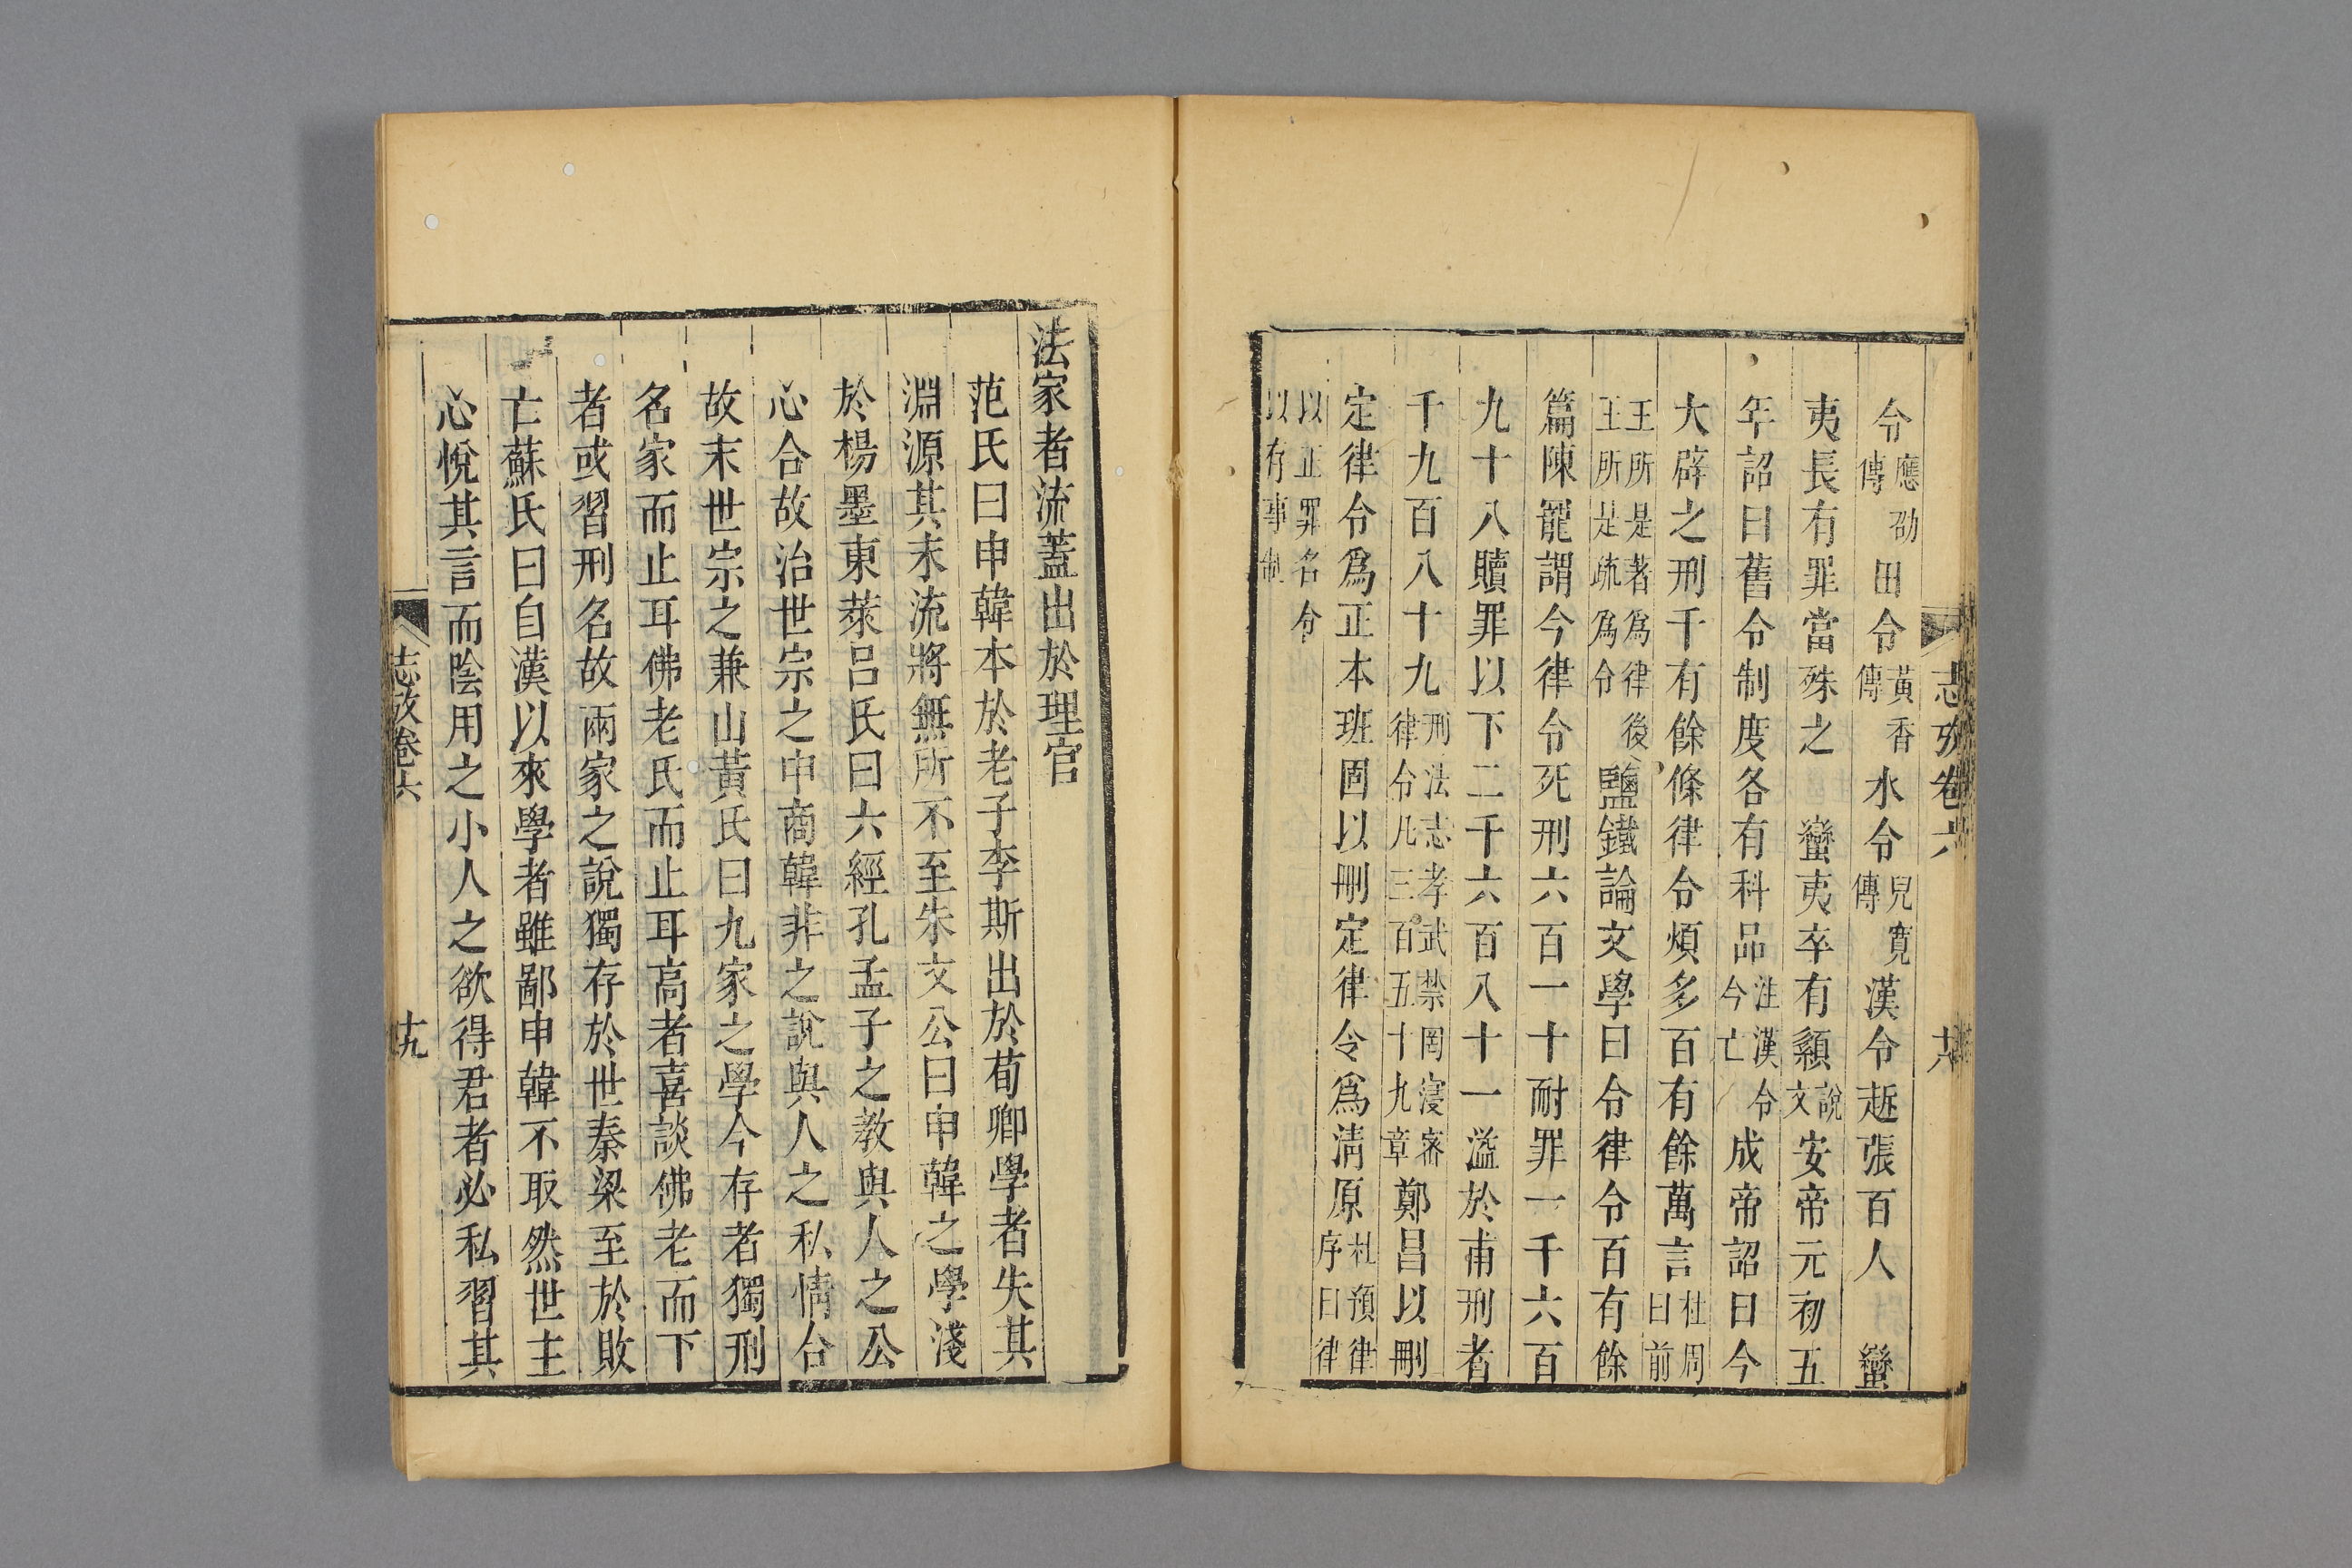 志攷卷六 十八
令應劭傳田令黃香傳水令兒寬傳漢令趀張百人 蠻
夷長有罪當殊之 蠻夷卒有䫂說文安帝元初五
年詔曰舊令制度各有科品注漢令今亡成帝詔曰今
大辟之刑千有餘條律令煩多百有餘萬言杜周曰前
王所是著爲律後王所是疏爲令鹽鐵論文學曰令律令百有餘
篇陳寵謂今律令死刑六百一十耐罪一千六百
九十八贖罪以下二千六百八十一溢於甫刑者
千九百八十九刑法志孝武禁罔寖密律令凡三百五十九章鄭昌以刪
定律令爲正本班固以刪定律令爲清原杜預律序曰律
以正罪名令以存事制
法家者流蓋出於理官
范氏曰申韓本於老子李斯出於荀卿學者失其
淵源其末流將無所不至朱文公曰申韓之學淺
於楊墨東萊呂氏曰六經孔孟子之教與人之公
心合故治世宗之申商韓非之說與人之私情合
故末世宗之兼山黃氏曰九家之學今存者獨刑
名家而止耳佛老氏而止耳高者喜談佛老而下
者或習刑名故兩家之說獨存於世秦梁至於敗
亡蘇氏曰自漢以來學者雖鄙申韓不取然世主
心悅其言而陰用之小人之欲得君者必私習其
志攷卷六 十九